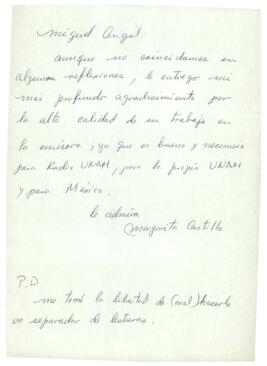 Miguel Angel:
aunque no coincidamos en
algunas reflexiones, le entrego mi
más profundo agradecimiento por
la alta calidad de su trabajo en
la emisora ¡ya que es bueno y necesario
para Radio UNAM, para la propia UNAM
y para México.
le admira
Margarita Castillo
P.D
me tomé la libertad de (mal) hacerle
un separador de lecturas.